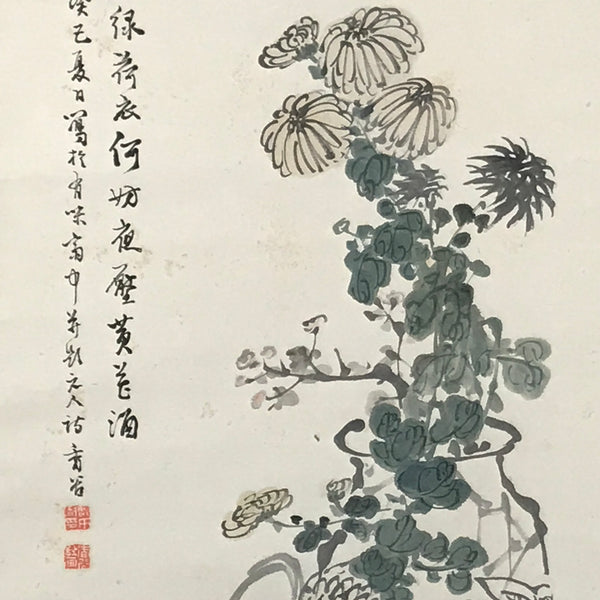 綠荷衣何妨夜壓黄花酒
癸巳夏日寫於有味齋中并題元人詩谷